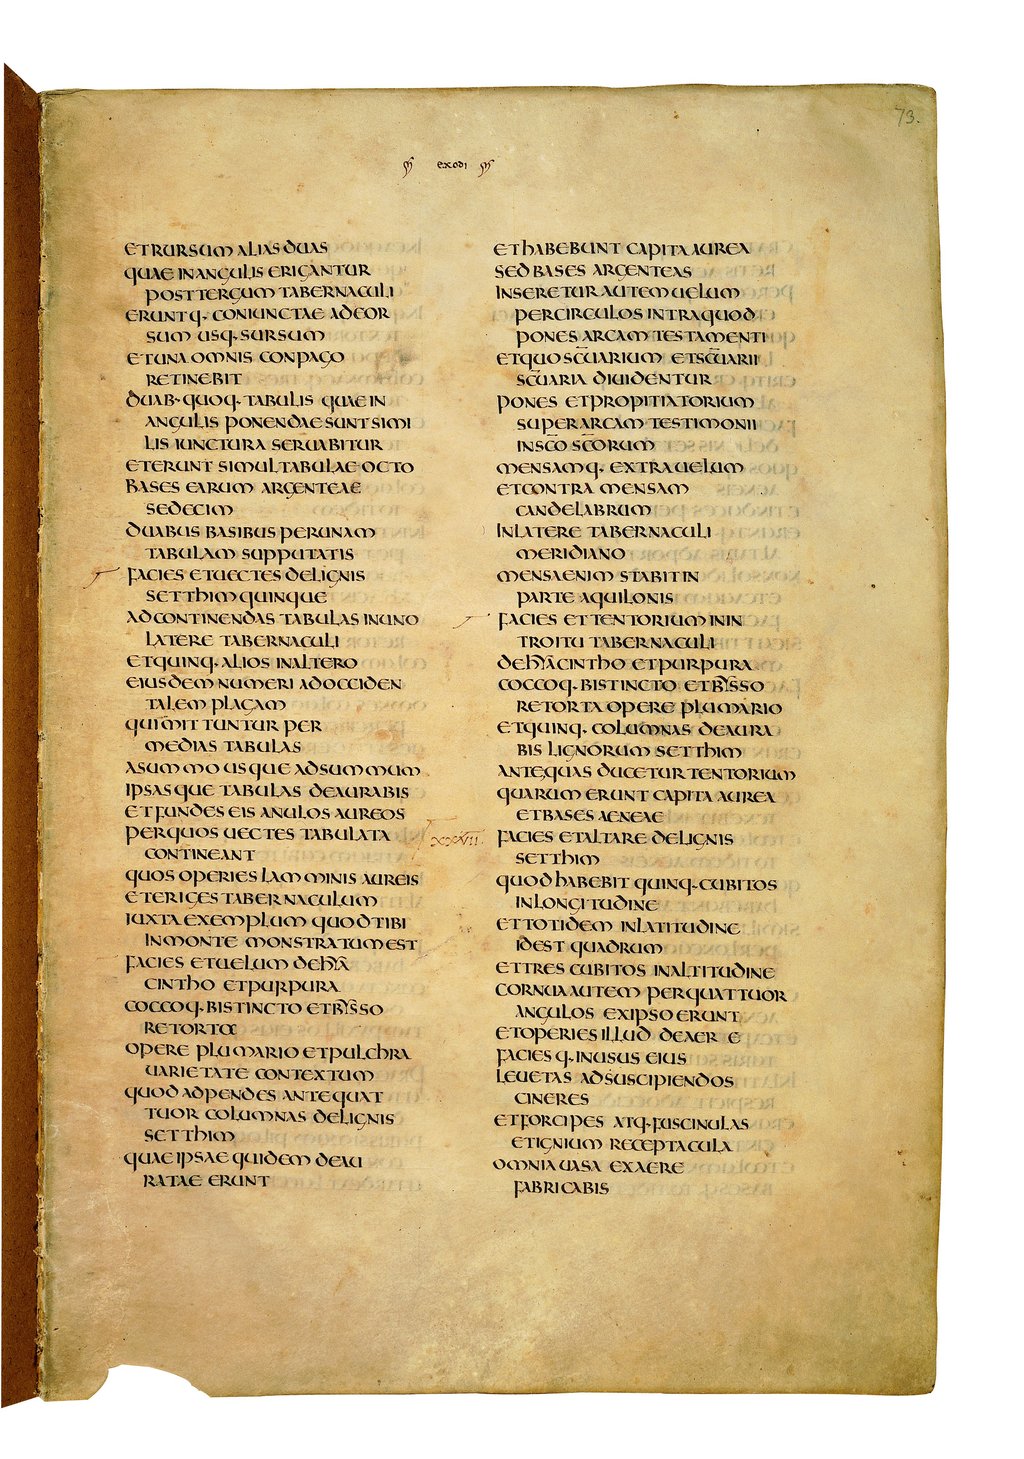 73.
exodi
ET RURSUM ALIAS DUAS
QUAE IN ANGULIS ERIGANTUR
POST TERGUM TABERNACULI
ERUNTQ· CONIUNCTAE AD EOR
SUM USQ· SURSUM
ET UNA OMNIS CONPAGO
RETINEBIT
DUAB· QUOQ· TABULIS QUAE IN
ANGULIS PONENDAE SUNT SIMI
LIS IUNCTURA SERUABITUR
ET ERUNT SIMUL TABULAE OCTO
BASES EARUM ARGENTEAE
SEDECIM
DUABUS BASIBUS PER UNAM
TABULAM SUPPUTATIS
FACIES ET UECTES DE LIGNIS
SETTHIM QUINQUE
AD CONTINENDAS TABULAS IN UNO
LATERE TABERNACULI
ET QUINQ· ALIOS IN ALTERO
EIUSDEM NUMERI AD OCCIDEN
TALEM PLAGAM
QUI MITTUNTUR PER
MEDIAS TABULAS
A SUMMO USQUE AD SUMMUM
IPSASQUE TABULAS DEAURABIS
ET FUNDES EIS ANULOS AUREOS
PER QUOS UECTES TABULATA
CONTINEANT
QUOS OPERIES LAMMINIS AUREIS
ET ERIGES TABERNACULUM
IUXTA EXEMPLUM QUOD TIBI
IN MONTE MONSTRATUM EST
FACIES ET UELUM DE HYA
CINTHO ET PURPURA
COCCOQ· BIS TINCTO ET BYSSO
RETORTA
OPERE PLUMARIO ET PULCHRA
UARIETATE CONTEXTUM
QUOD ADPENDES ANTE QUAT
TUOR COLUMNAS DE LIGNIS
SETTHIM
QUAE IPSAE QUIDEM DEAU
RATAE ERUNT
ET HABEBUNT CAPITA AUREA
SED BASES ARGENTEAS
INSERETUR AUTEM UELUM
PER CIRCULOS INTRA QUOD
PONES ARCAM TESTAMENTI
ET QUO SC̄UARIUM ET SC̄UARII
SC̄UARIA DIUIDENTUR
PONES ET PROPITIATORIUM
SUPER ARCAM TESTIMONII
IN SC̄O SC̄ORUM
MENSAMQ· EXTRA UELUM
ET CONTRA MENSAM
CANDELABRUM
IN LATERE TABERNACULI
MERIDIANO
MENSA ENIM STABIT IN
PARTE AQUILONIS
FACIES ET TENTORIUM IN IN
TROITU TABERNACULI
DE HYACINTHO ET PURPURA
COCCOQ· BIS TINCTO ET BYSSO
RETORTA OPERE PLUMARIO
ET QUINQ· COLUMNAS DEAURA
BIS LIGNORUM SETTHIM
ANTE QUAS DUCETUR TENTORIUM
QUARUM ERUNT CAPITA AUREA
ET BASES AENEAE
XXVII FACIES ET ALTARE DE LIGNIS
SETTHIM
QUOD HABEBIT QUINQ· CUBITOS
IN LONGITUDINE
ET TOTIDEM IN LATITUDINE
IDEST QUADRUM
ET TRES CUBITOS IN ALTITUDINE
CORNUA AUTEM PER QUATTUOR
ANGULOS EX IPSO ERUNT
ET OPERIES ILLUD DE AERE
FACIESQ· IN USUS EIUS
LEUETAS AD SUSCIPIENDOS
CINERES
ET FORCIPES ATQ· FUSCINULAS
ET IGNIUM RECEPTACULA
OMNIA UASA EX AERE
FABRICABIS